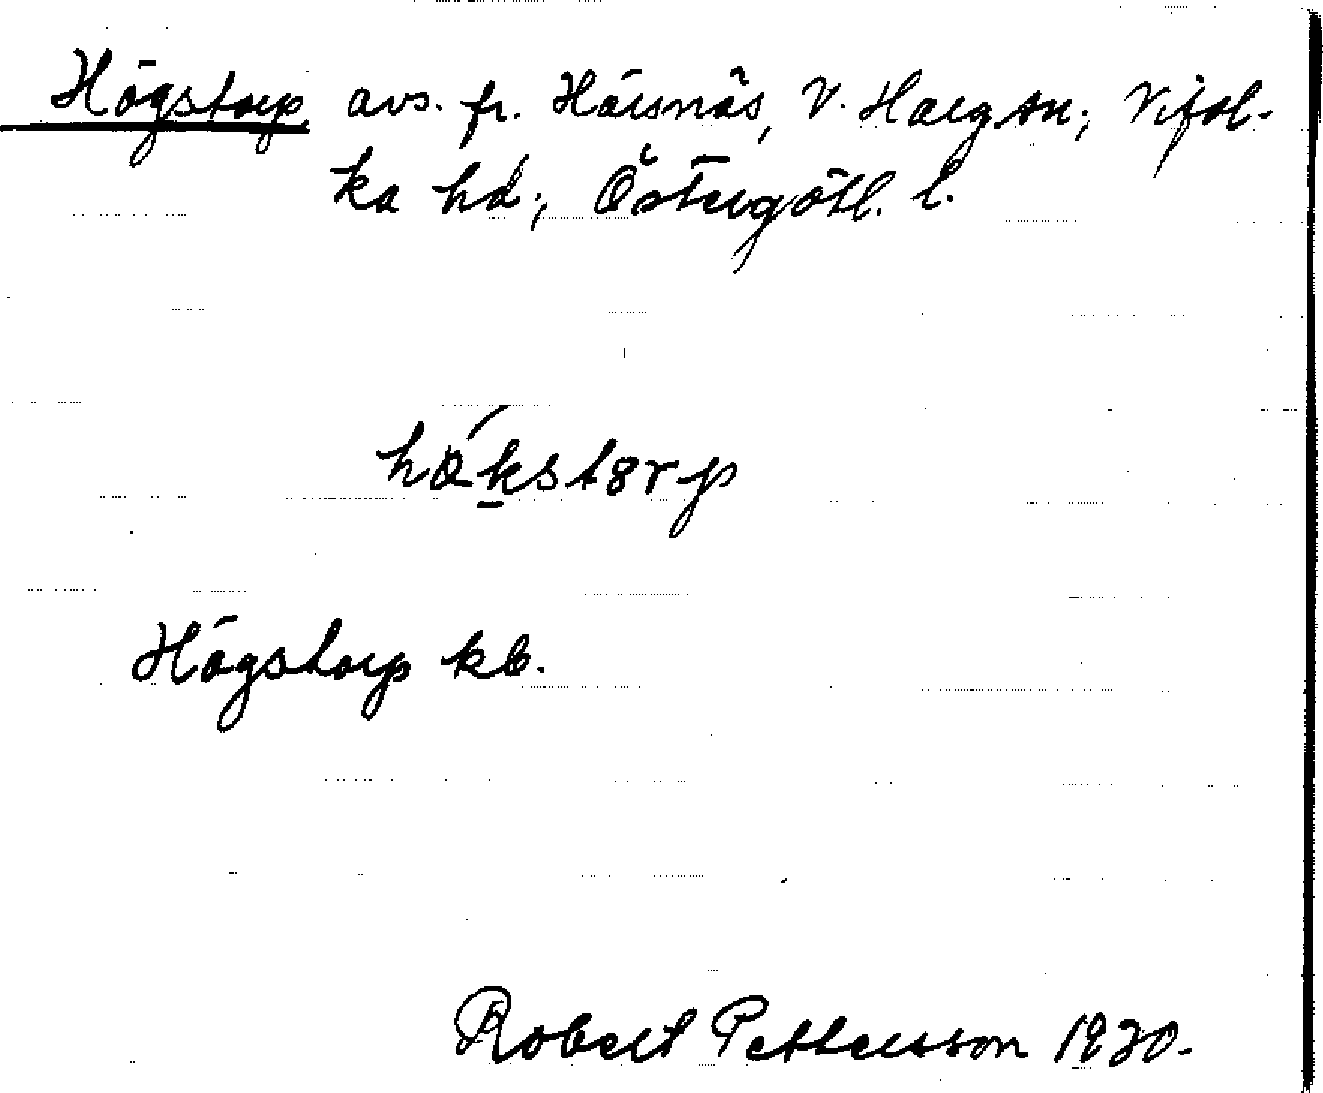 Högstorp, avs. fr. Härsnäs, V. Harg sn; Vifol-
ka hd; Östergötl. l.
Högstorp kb.
Robert Pettersson 1930.